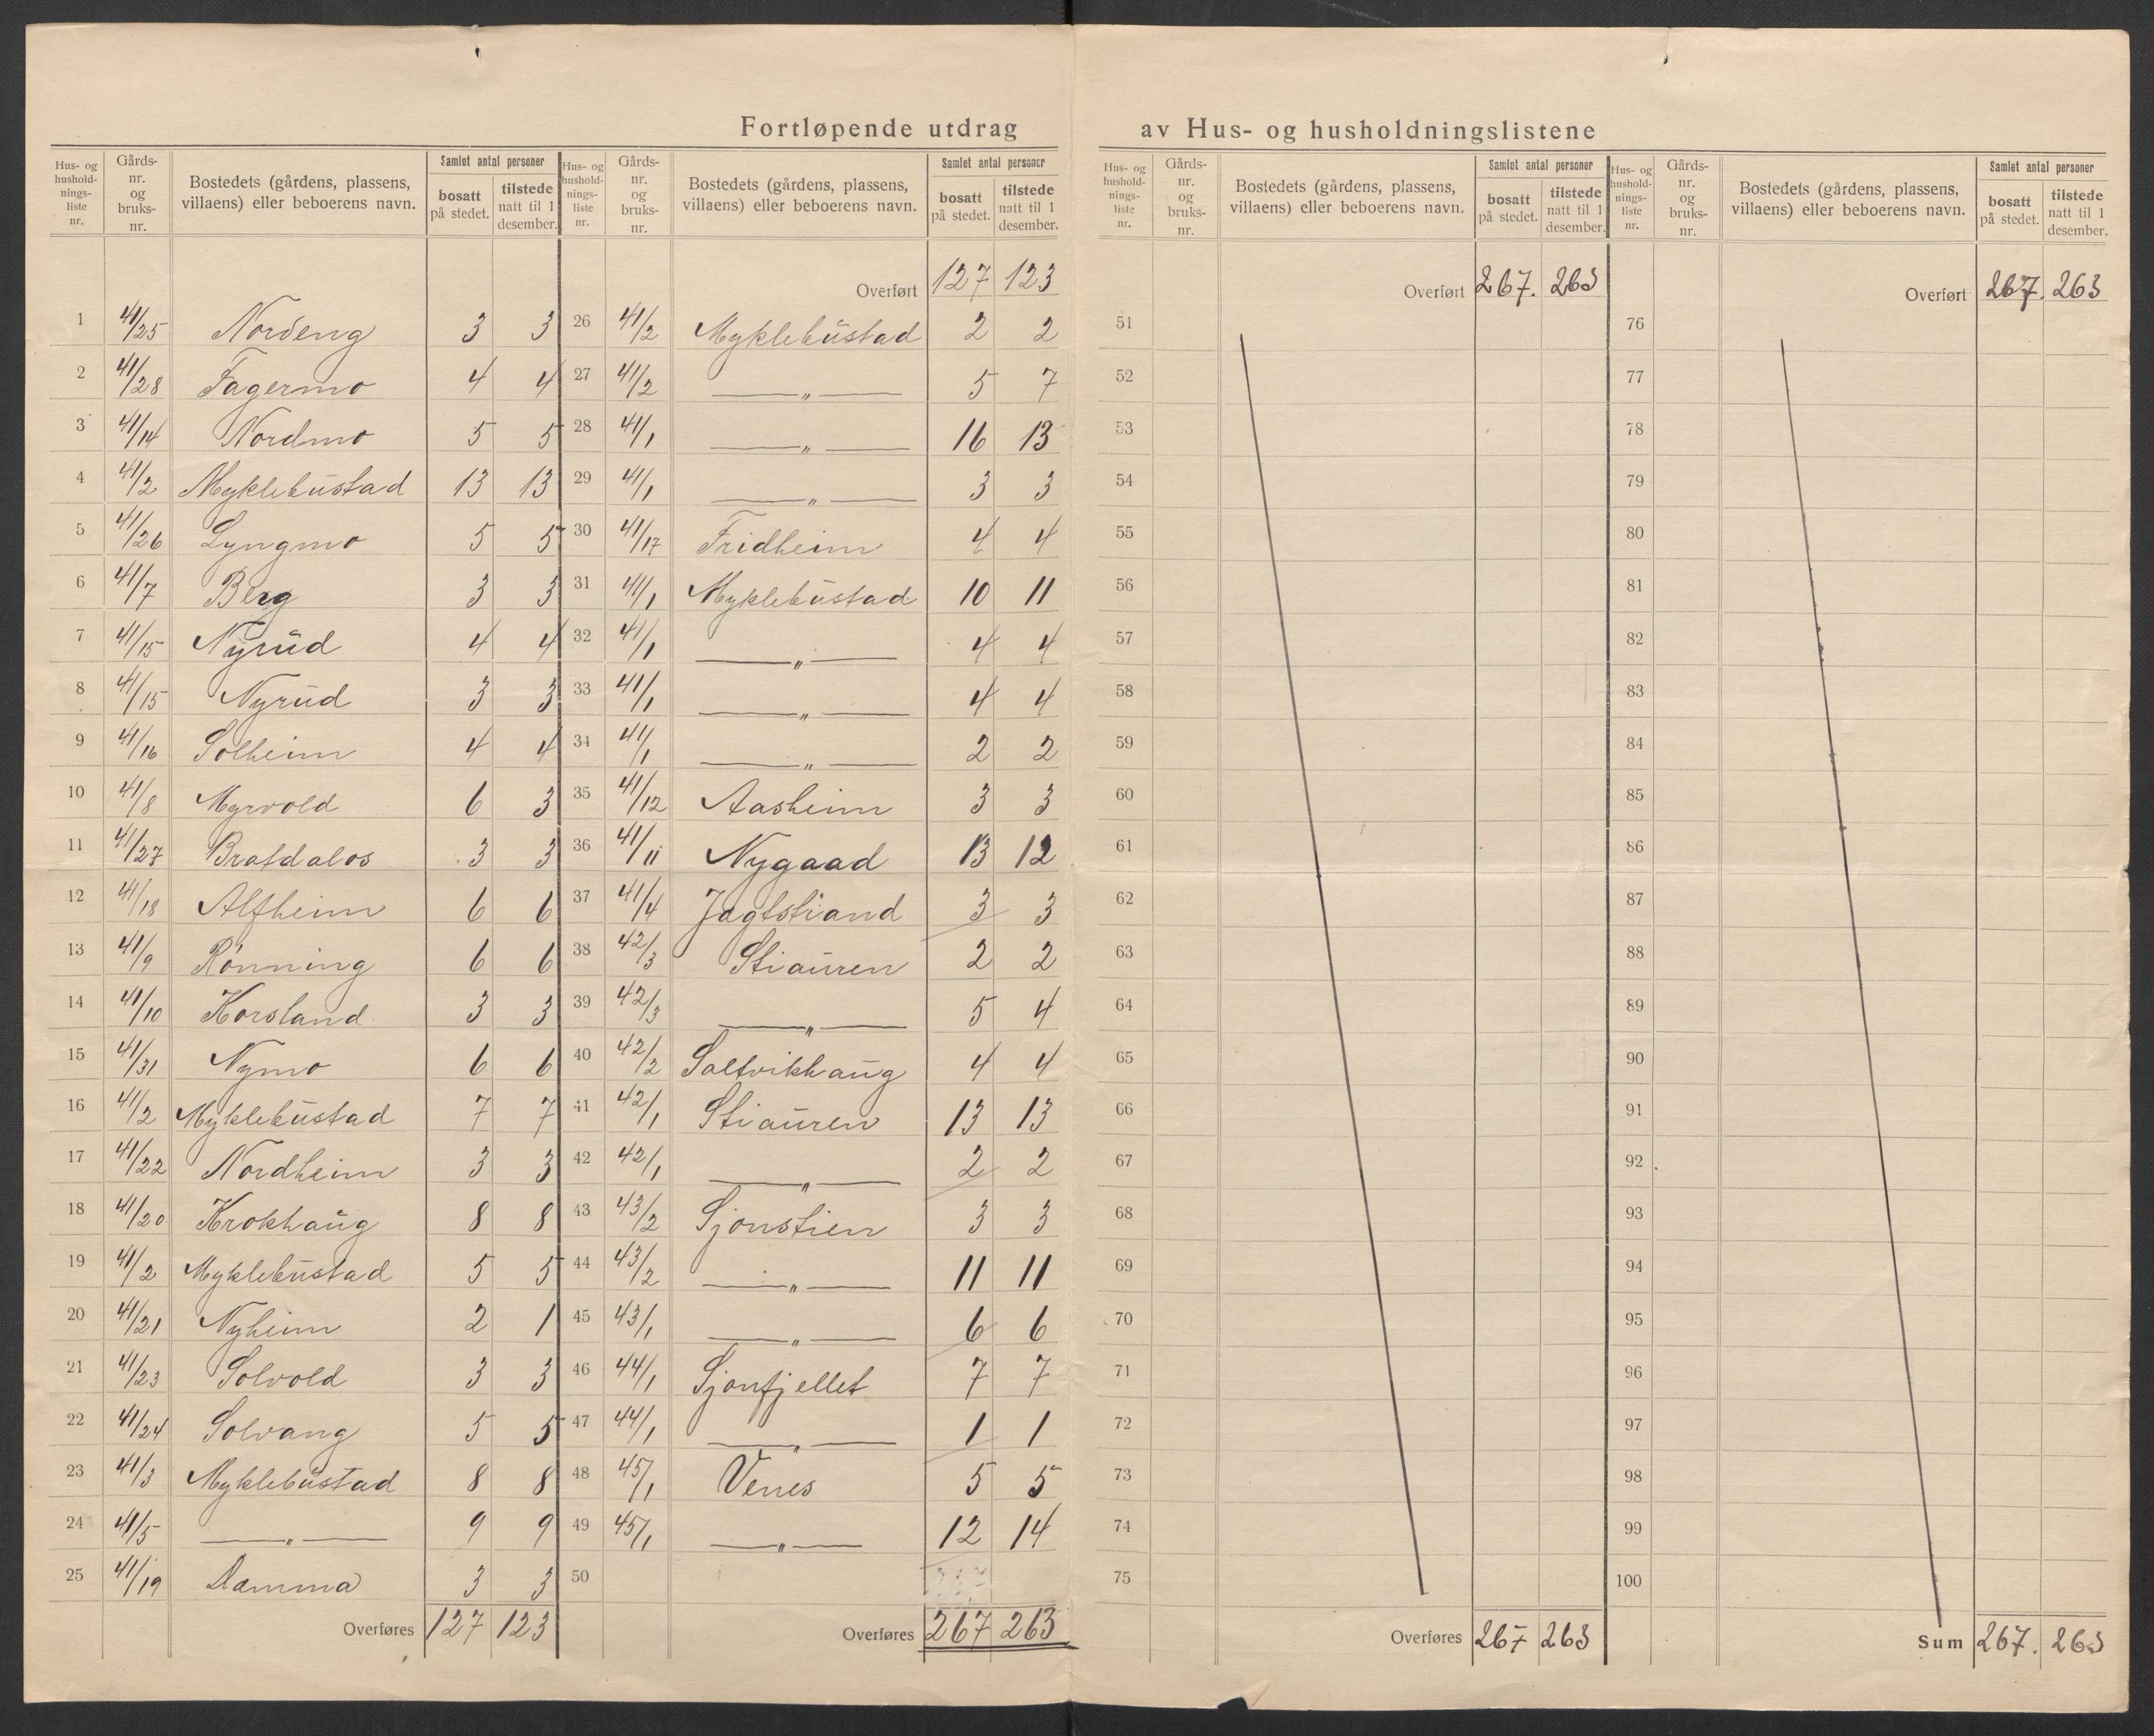 Fortløpende utdrag av Hus- og husholdningslistene
Hus- og husholdnings-liste nr. | Gårds-nr. og bruks-nr. | Bostedets (gårdens, plassens, villaens) eller beboerens navn. | Samlet antal personer bosatt på stedet. | tilstede natt til 1 desember.
1 41/25 Nordeng 3 3
2 41/28 Fagermo 4 4
3 41/14 Nordmo 5 5
4 41/2 Myklebustad 13 13
5 41/26 Lyngmo 5 5
6 41/7 Berg 3 3
7 41/15 Nyrud 4 4
8 41/15 Nyrud 3 3
9 41/16 Solheim 4 4
10 41/8 Myrvold 6 3
11 41/27 Bratdalos 3 3
12 41/18 Alfheim 6 6
13 41/9 Rönning 6 6
14 41/10 Korsland 3 3
15 41/31 Nymo 6 6
16 41/2 Myklebustad 7 7
17 41/22 Nordheim 3 3
18 41/20 Krokhaug 8 8
19 41/2 Myklebustad 5 5
20 41/21 Nyheim 2 1
21 41/23 Solvold 3 3
22 41/24 Solvang 5 5
23 41/3 Myklebustad 8 8
24 41/5 —„— 9 9
25 41/19 Damma 3 3
Overføres 127 123
Hus- og husholdnings-liste nr. | Gårds-nr. og bruks-nr. | Bostedets (gårdens, plassens, villaens) eller beboerens navn. | Samlet antal personer bosatt på stedet. | tilstede natt til 1 desember.
Overført 127 123
26 41/2 Myklebustad 2 2
27 41/2 —„— 5 7
28 41/1 —„— 16 13
29 41/1 —„— 3 3
30 41/17 Fridheim 4 4
31 41/1 Myklebustad 10 11
32 41/1 —„— 4 4
33 41/1 —„— 4 4
34 41/1 —„— 2 2
35 41/12 Aasheim 3 3
36 41/11 Nygaad 13 12
37 41/4 Jagtstrand 3 3
38 42/3 Stiauren 2 2
39 42/3 —„— 5 4
40 42/2 Saltvikhaug 4 4
41 42/1 Stiauren 13 13
42 42/1 —„— 2 2
43 43/2 Sjonstien 3 3
44 43/2 —„— 11 11
45 43/1 —„— 6 6
46 44/1 Sjonfjellet 7 7
47 44/1 —„— 1 1
48 45/1 Venes 5 5
49 45/1 —„— 12 14
50
Overføres 267 263
Hus- og husholdnings-liste nr. | Gårds-nr. og bruks-nr. | Bostedets (gårdens, plassens, villaens) eller beboerens navn. | Samlet antal personer bosatt på stedet. | tilstede natt til 1 desember.
Overført 267. 263
51
52
53
54
55
56
57
58
59
60
61
62
63
64
65
66
67
68
69
70
71
72
73
74
75
Overføres 267 263
Hus- og husholdnings-liste nr. | Gårds-nr. og bruks-nr. | Bostedets (gårdens, plassens, villaens) eller beboerens navn. | Samlet antal personer bosatt på stedet. | tilstede natt til 1 desember.
Overført 267. 263
76
77
78
79
80
81
82
83
84
85
86
87
88
89
90
91
92
93
94
95
96
97
98
99
100
Sum 267. 263